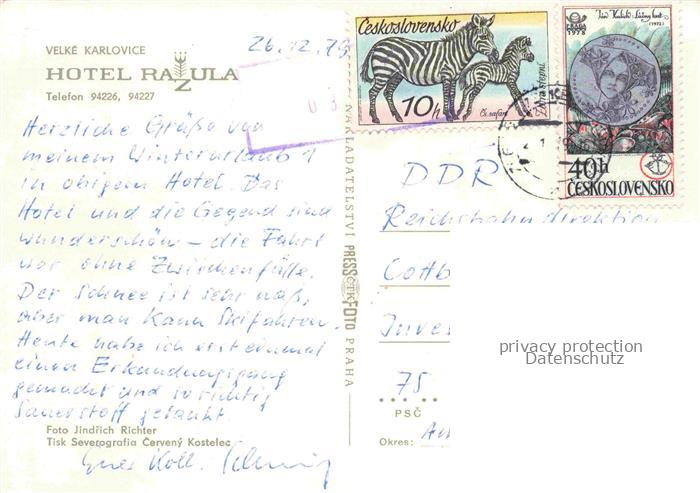 VELKÉ KARLOVICE
HOTEL RAZULA
Telefon 94226, 94227
26.12.79
Herzliche Grüße von
meinem Winterurlaub
in obigem Hotel. Das
Hotel und die Gegend sind
wunderschön – die Fahrt
war ohne Zwischenfälle.
Der Schnee ist sehr naß,
aber man kann Skifahren.
Heute habe ich ersteinmal
einen Erkundungsgang
gemacht und so richtig
Sauerstoff getankt.
Foto Jindřich Richter
Tisk Severografia Červený Kostelec
Koll.
NAKLADATELSTVÍ PRESSFOTO PRAHA
ČTK
Československo
10h
Čs. safari
PRAGA
1978
40h
ČESKOSLOVENSKO
DDR
Reichsbahndirektion
Cottb
Inves
75
PSČ
Okres:
privacy protection
Datenschutz